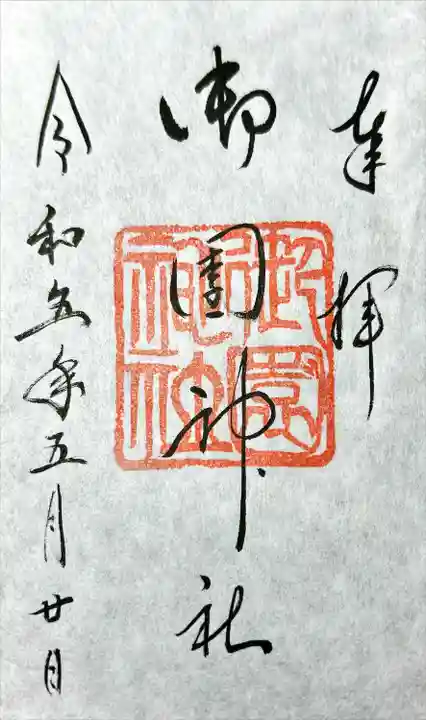 奉拝
御園神社
御園神社
令和五年五月廿日